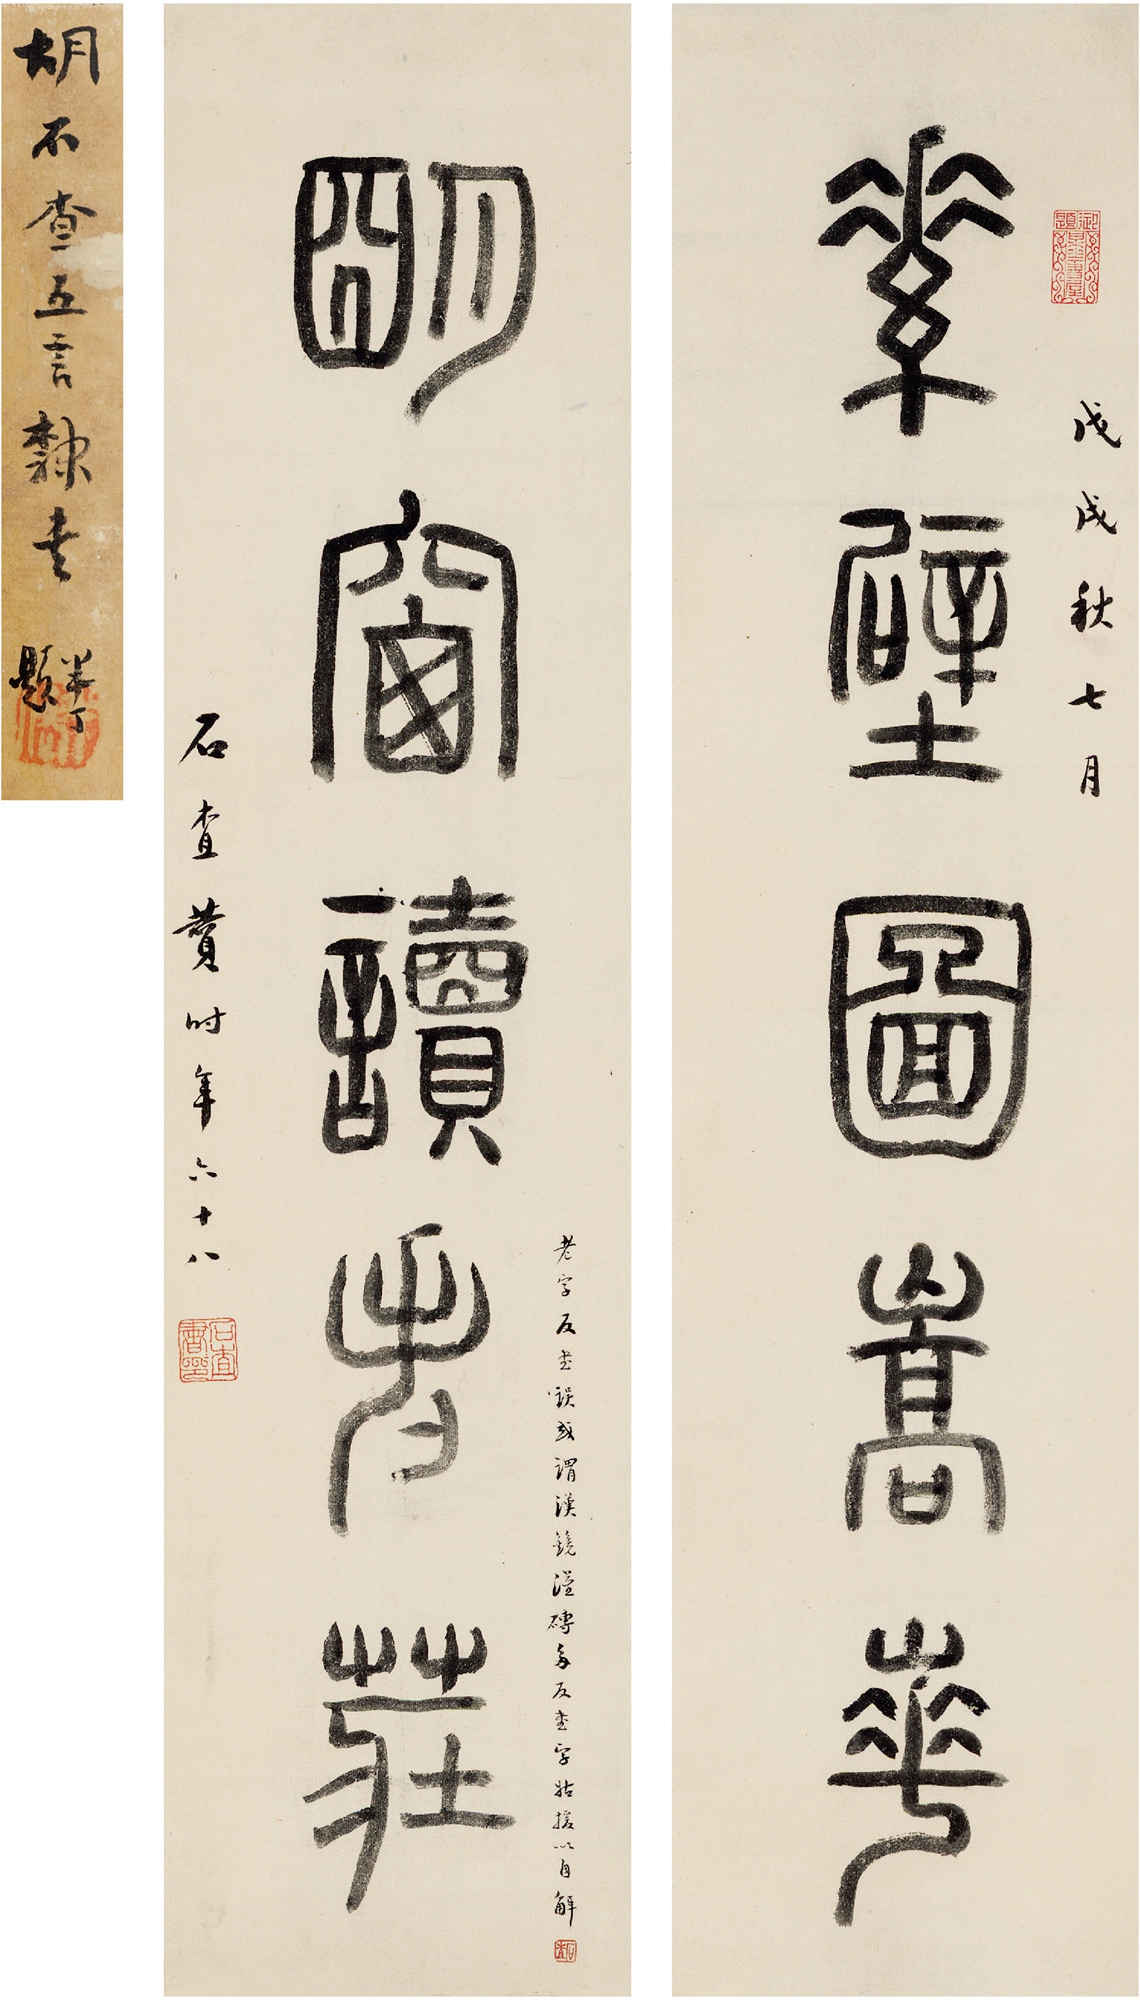 戊戌秋七月
素壁圖嵩華
朙窗讀老莊
老字反書誤或謂漢鏡磚多反書字姑援以自解
石查
石查贊時年六十八
石查書印
胡石查五言隸書
半丁題